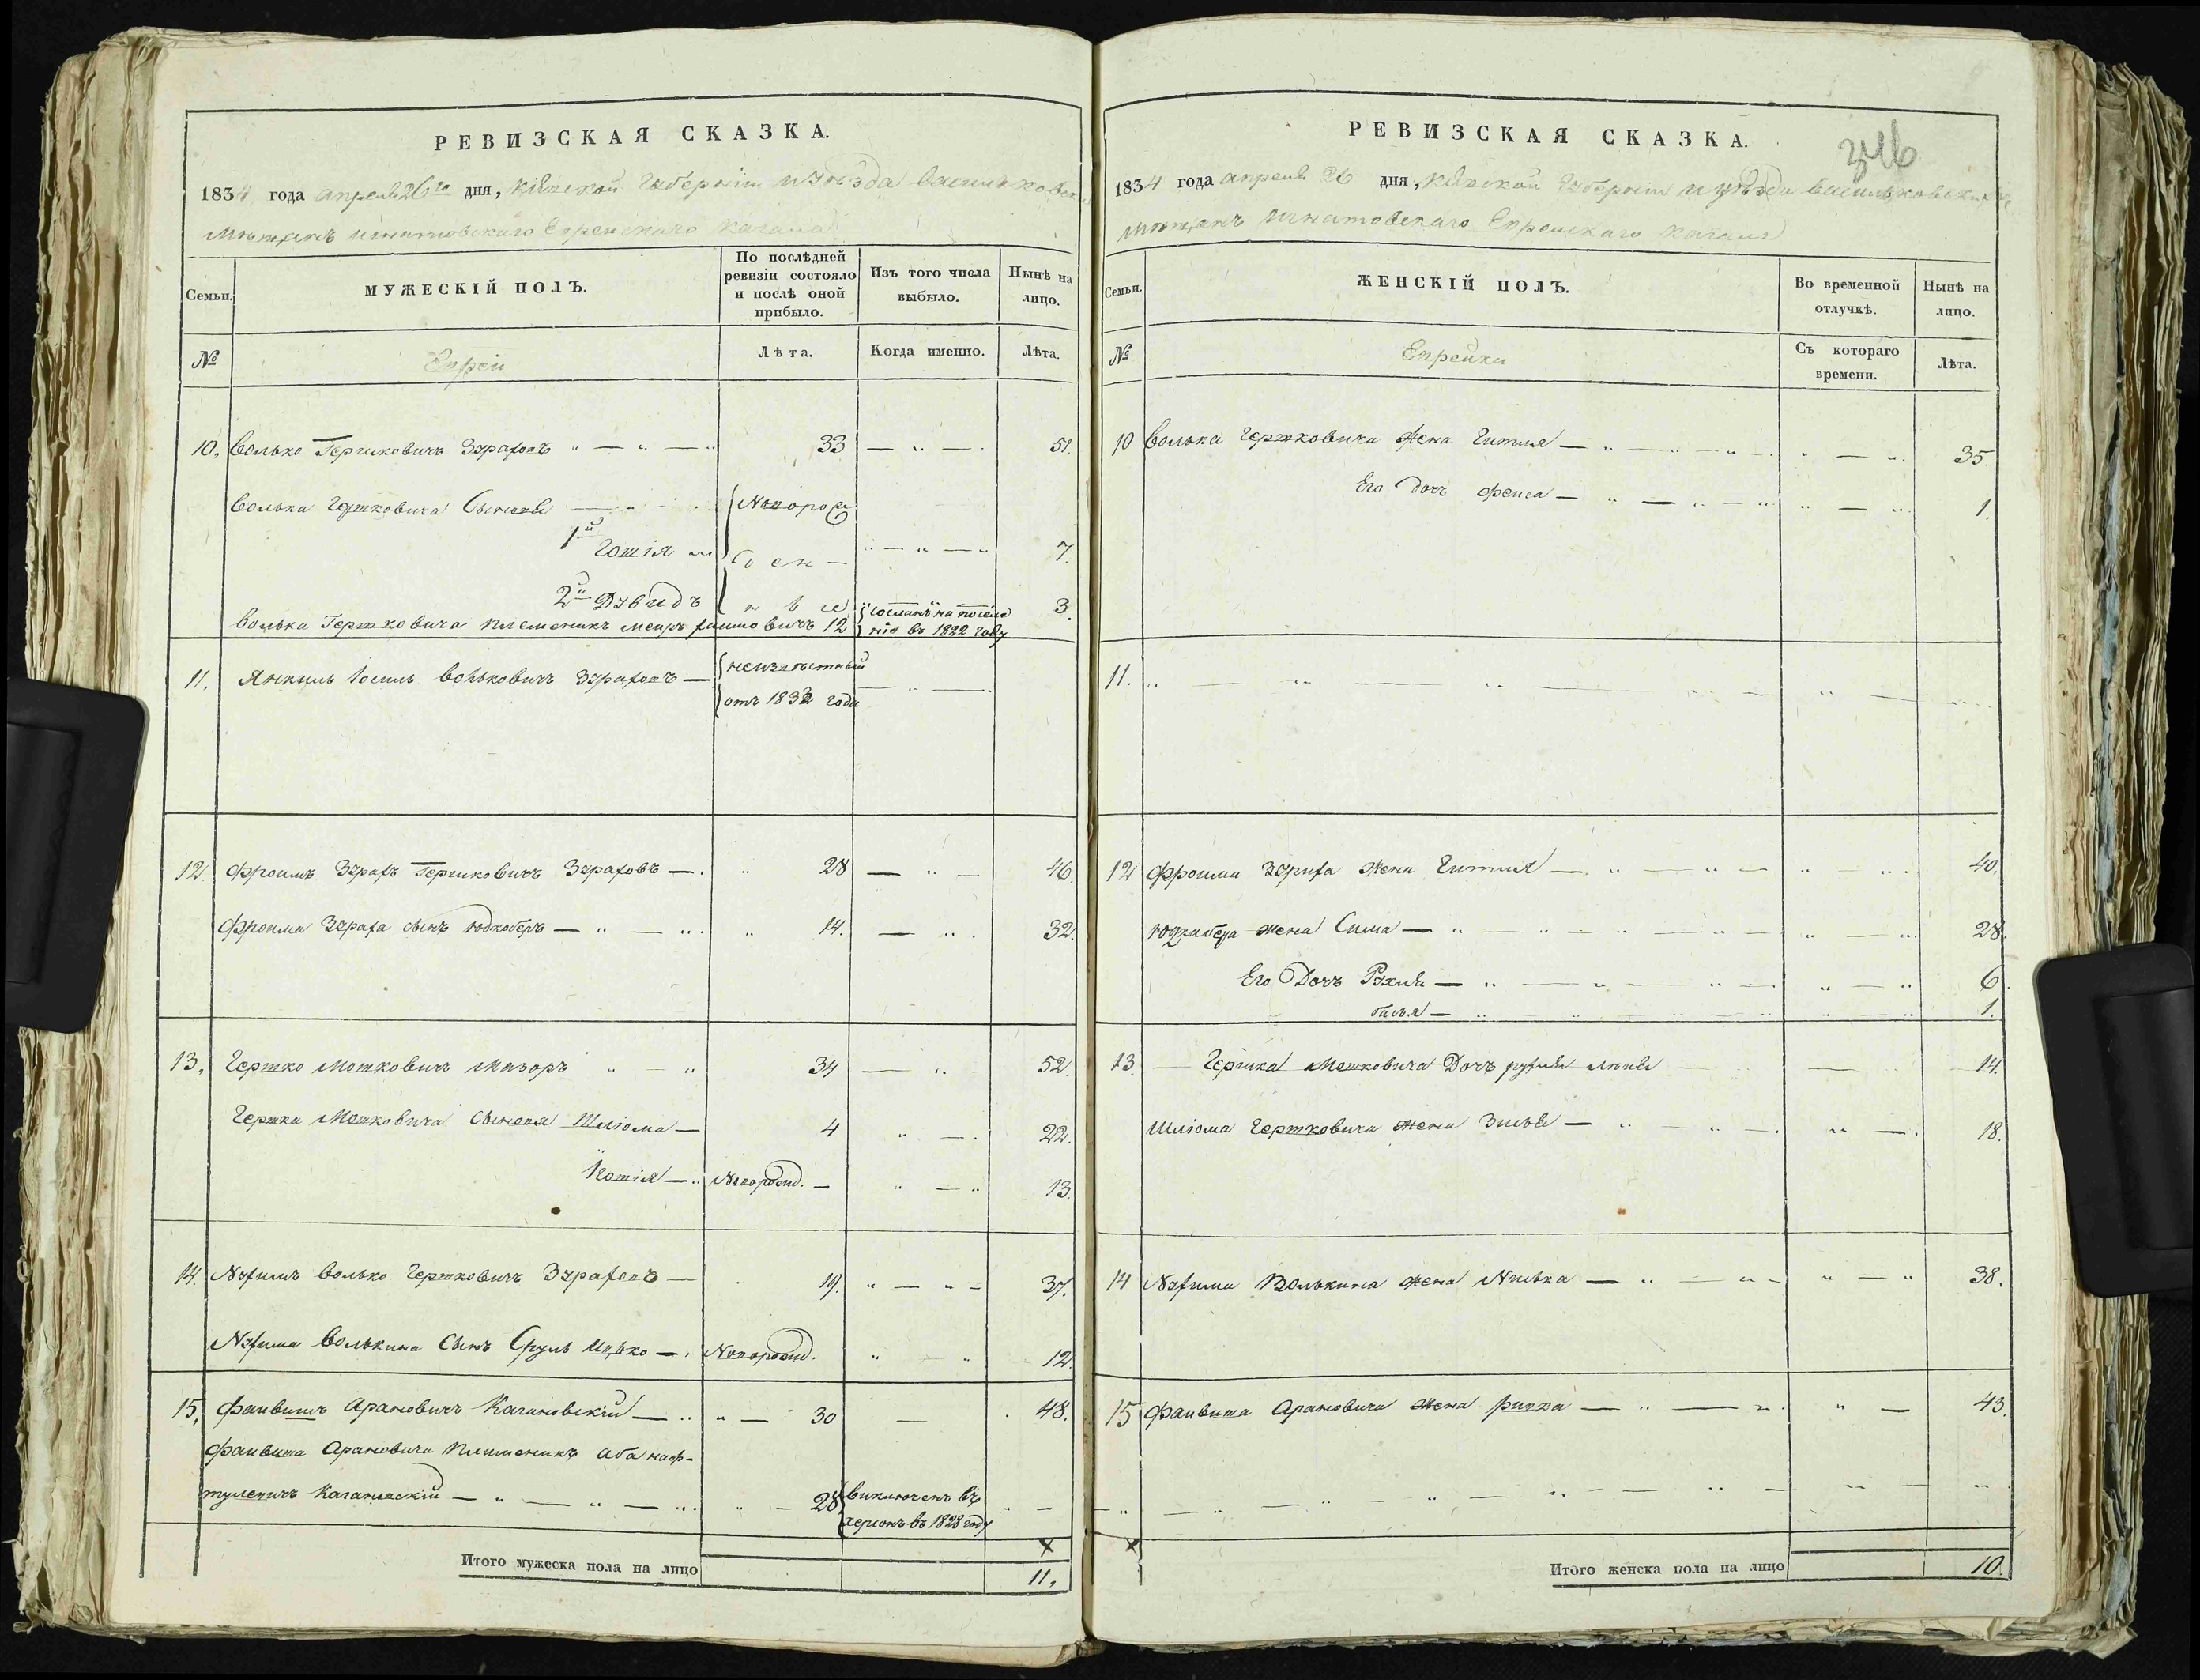 РЕВИЗСКАЯ СКАЗКА.
1834 года апреля 26го дня, Кіевской Губерніи и уѣзда Васильковск
Мѣщанъ Игнатовскаго Еврейскаго Кагала
Семьи.
МУЖЕСКІЙ ПОЛЪ.
По послѣдней ревизіи состояло и послѣ оной прибыло.
Изъ того числа выбыло.
Нынѣ на лицо.
№
Евреи
Лѣта.
Когда именно.
Лѣта.
10. Волько Гершковичъ 33 51.
Волька Гершковича Сыновья Новорож
1й 7.
ден
2й Дувидъ ные 3.
Волька Гершковича племеникъ 12 сосланъ на поселе
нія въ 1822 году
11. Янкель Іосиль Вольковичъ неизвѣстный
отъ 1832 года
12. Фроимъ Гершковичъ 28 46.
Фроима сынъ 14. 32.
13. Гершко Мошковичъ Мазоръ 34 52.
Гершка Мошковича Сыновья Шліома 4 22.
Новорожд. 13.
14. Волько Гершковичъ 19. 37.
Волькина Сынъ Сруль Ицько Новорожд. 12.
15. Файвишъ Арановичъ Кагановскій 30 48.
Файвиша Арановича Племеникъ Аба наф-
тулевичъ Кагановскій 28 виключенъ въ
херсонъ въ 1828 году
х
Итого мужеска пола на лицо 11.
РЕВИЗСКАЯ СКАЗКА.
346
1834 года апреля 26 дня, Кіевской Губерніи и уѣзда Васильковских
Мѣщанъ Игнатовскаго Еврейскаго Кагала
Семьи.
ЖЕНСКІЙ ПОЛЪ.
Во временной отлучкѣ.
Нынѣ на лицо.
№
Еврейки
Съ котораго времени.
Лѣта.
10 Волька Гершковича Жена Гитля 35.
Его Дочь Фейга 1.
11.
12 Фроима Жена Гитля 40.
жена Сима 28.
Его Дочь 6.
Бася 1.
13. Гершка Мошковича Дочь 14.
Шліома Гершковича Жена 18.
14 Волькина жена 38.
15 Файвиша Арановича Жена 43.
х
Итого женска пола на лицо 10.